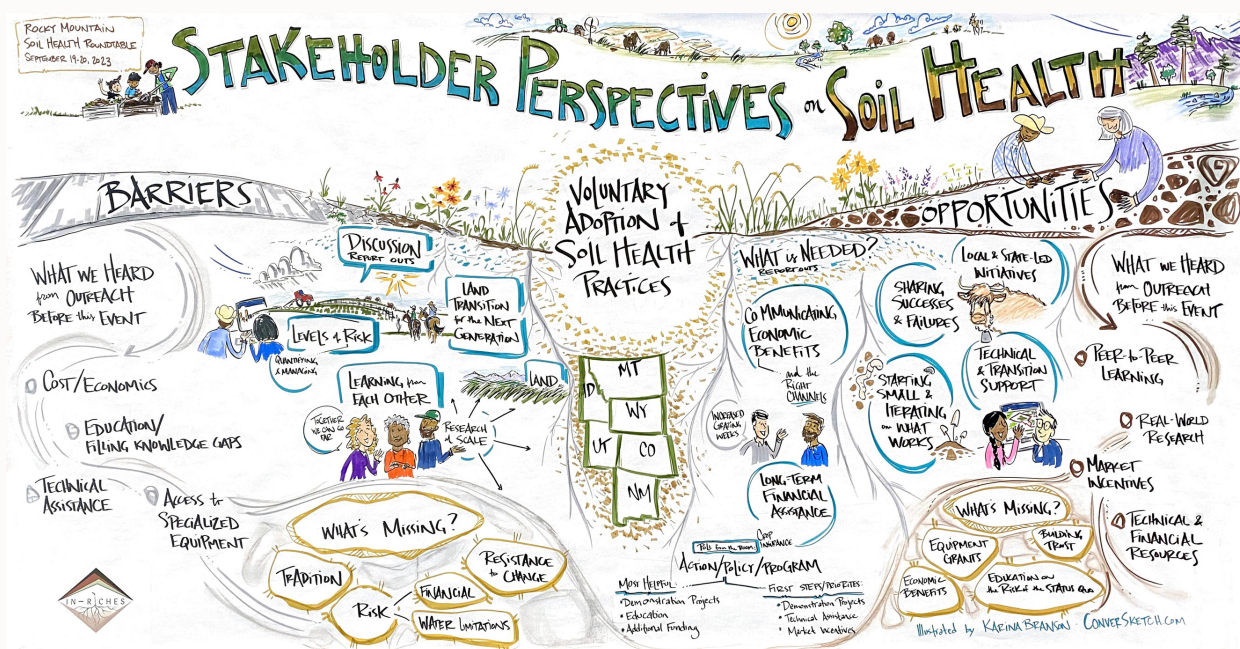 ROCKY MOUNTAIN
SOIL HEALTH ROUNDTABLE
SEPTEMBER 19-20, 2023
STAKEHOLDER PERSPECTIVES on SOIL HEALTH
BARRIERS
WHAT WE HEARD
from OUTREACH
BEFORE this EVENT
COST/ECONOMICS
EDUCATION/
FILLING KNOWLEDGE GAPS
TECHNICAL
ASSISTANCE
ACCESS to
SPECIALIZED
EQUIPMENT
DISCUSSION
REPORT OUTS
LEVELS of RISK
QUANTIFYING
& MANAGING
LAND
TRANSITION
for the NEXT
GENERATION
LEARNING from
EACH OTHER
LAND
TOGETHER
WE CAN GO
FAR
RESEARCH
at SCALE
WHAT'S MISSING?
TRADITION
RISK
FINANCIAL
WATER LIMITATIONS
RESISTANCE
to CHANGE
VOLUNTARY
ADOPTION +
SOIL HEALTH
PRACTICES
MT
ID
WY
UT
CO
NM
WHAT is NEEDED?
REPORT OUTS
COMMUNICATING
ECONOMIC
BENEFITS
and the
RIGHT
CHANNELS
INCREASED
GRAZING
WEEKS
LONG-TERM
FINANCIAL
ASSISTANCE
CROP
INSURANCE
Polls from the Room:
ACTION/POLICY/PROGRAM
MOST HELPFUL:
• Demonstration Projects
• Education
• Additional Funding
FIRST STEPS/PRIORITIES:
• Demonstration Projects
• Technical Assistance
• Market Incentives
OPPORTUNITIES
LOCAL & STATE-LED
INITIATIVES
SHARING
SUCCESSES
& FAILURES
STARTING
SMALL &
ITERATING
on WHAT
WORKS
TECHNICAL
& TRANSITION
SUPPORT
WHAT WE HEARD
from OUTREACH
BEFORE this EVENT
PEER-to-PEER
LEARNING
REAL-WORLD
RESEARCH
MARKET
INCENTIVES
TECHNICAL &
FINANCIAL
RESOURCES
WHAT'S MISSING?
EQUIPMENT
GRANTS
BUILDING
TRUST
ECONOMIC
BENEFITS
EDUCATION on
the RISK of the STATUS QUO
IN-RICHES
Illustrated by KARINA BRANSON · CONVERSKETCH.COM